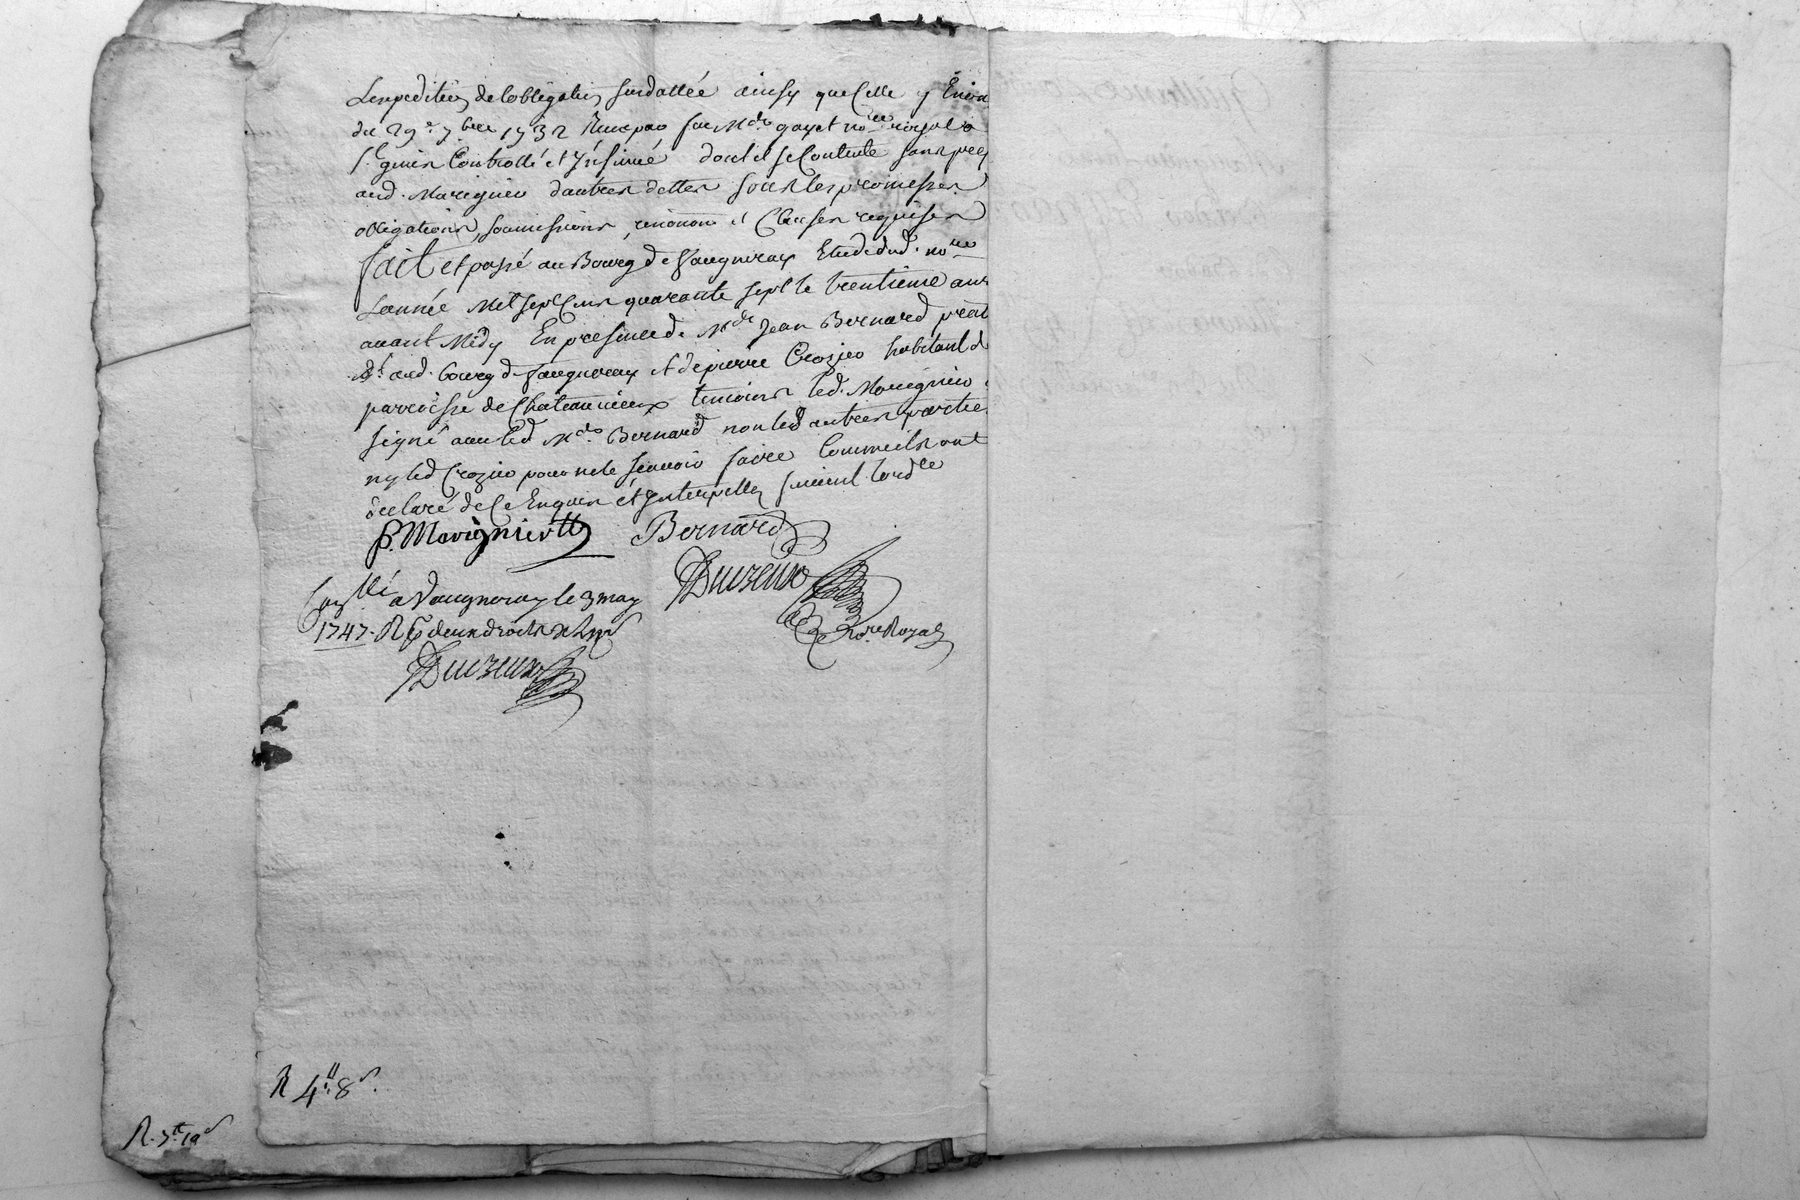 L'expedition de l'obligation susdattée ainsy que Celle y
du 29e 7bre 1732 Receu par Me gayot nore royal a
St genis Controllé et Insinué dont il se Contente sans
aud. Marignier d'autres dettes sous les promesses
obligations, soumissions, renonon et Clauses requises
fait et passé au Bourg de Vaugneray Etude dud. nore
L'année Mil sept Cens quarante sept le trentieme
avant Midy En presence de Me Jean Bernard prat
dt aud. bourg de Vaugneray et de pierre Crozier habitant d
parroisse de Chateauvieux temoins led. Marignier
signé avec led Me Bernard non les autres partie
ny led Crozier pour ne le sçavoir faire Comme ils ont
declaré de Ce Enquis et Interpellés suivant lordce
P. Marignier Bernard
Ducreux
nore Royal
Conllé a Vaugneray le 3 may
1747. R deux droits
Ducreux
R 4# 8s.
R. 3tt 19s